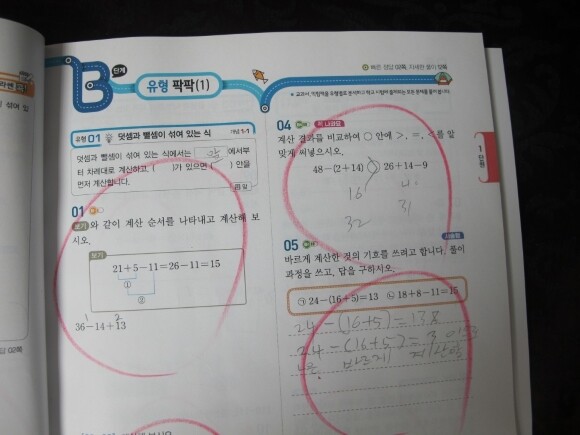 B 단계
유형 팍팍(1)
빠른 정답 02쪽, 자세한 풀이 02쪽
유형 01 덧셈과 뺄셈이 섞여 있는 식
개념 1-1
덧셈과 뺄셈이 섞여 있는 식에서는 앞 에서부
터 차례대로 계산하고, ( )가 있으면 ( ) 안을
먼저 계산합니다.
01
보기 와 같이 계산 순서를 나타내고 계산해 보
시오.
보기
21+5-11=26-11=15
①
②
1 2
36-14+13
04
계산 결과를 비교하여 ○ 안에 >, =, <를 알
맞게 써넣으시오.
48-(2+14) > 26+14-9
16
32 31
05 서술형
바르게 계산한 것의 기호를 쓰려고 합니다. 풀이
과정을 쓰고, 답을 구하시오.
㉠ 24-(16+5)=13 ㉡ 18+8-11=15
24-(16+5)=13
24-(16+5)=3
바르게 계산
1 단원